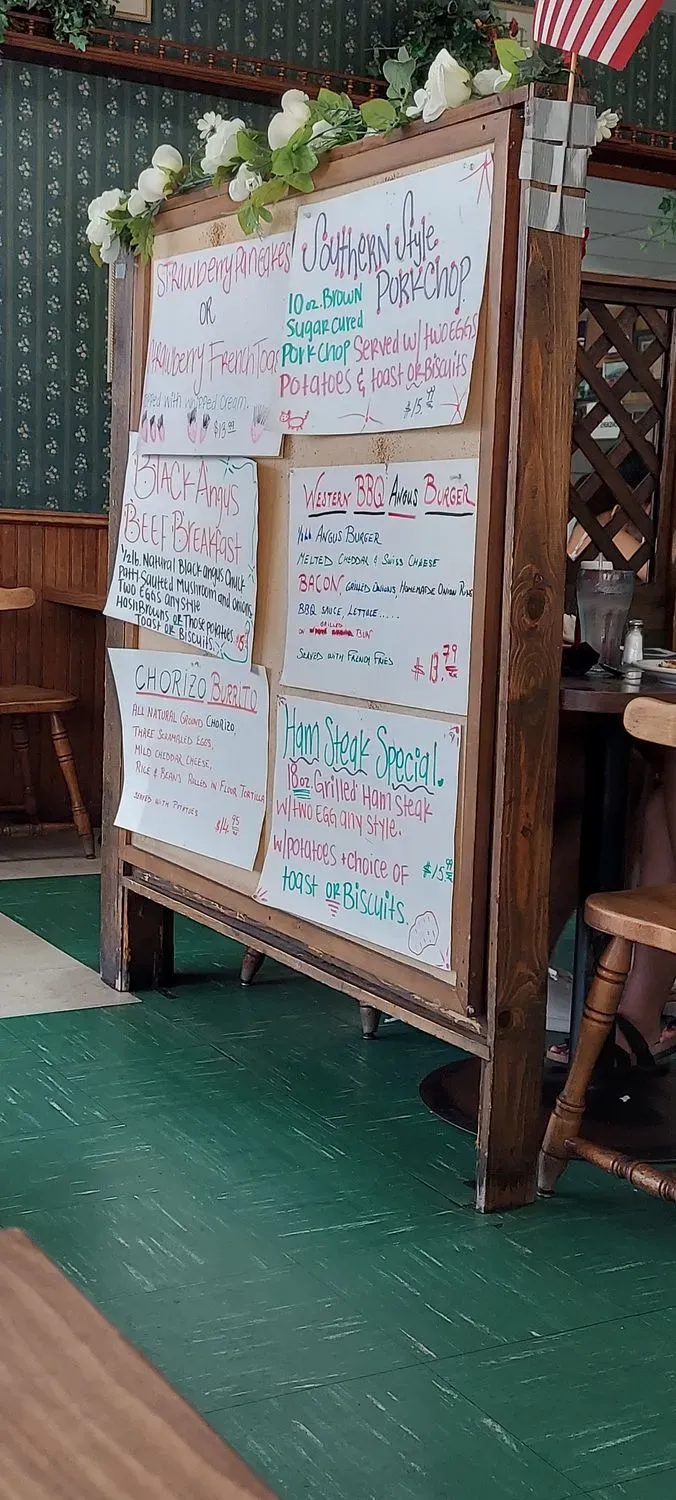 Strawberry Pancakes
OR
Strawberry French Toast
with whipped cream.
$13.99
Southern Style
PorkChop
10 oz. Brown
Sugar cured
Pork Chop Served w/ two EGGS
Potatoes & toast or Biscuits
$15.99
Black Angus
Beef Breakfast
1/2 lb. Natural Black angus Chuck
Patty Sauted Mushroom and onions
Two EGGS any style
Hash Browns or Those potatoes
Toast or Biscuits.
Western BBQ Angus Burger
Angus Burger
Melted Cheddar & Swiss Cheese
BACON Grilled Onions, Homemade Onion Ring
BBQ Sauce, Lettuce.....
Grilled
on Bun
Served with French Fries
$13.79
CHORIZO BURRITO
All Natural Ground Chorizo,
Three Scrambled Eggs,
Mild Cheddar Cheese,
Rice & Beans Rolled in Flour Tortilla
Served with Potatoes
$14.95
Ham Steak Special.
18oz. Grilled Ham Steak
w/two EGG any Style.
w/potatoes + choice of
toast OR Biscuits.
$15.99